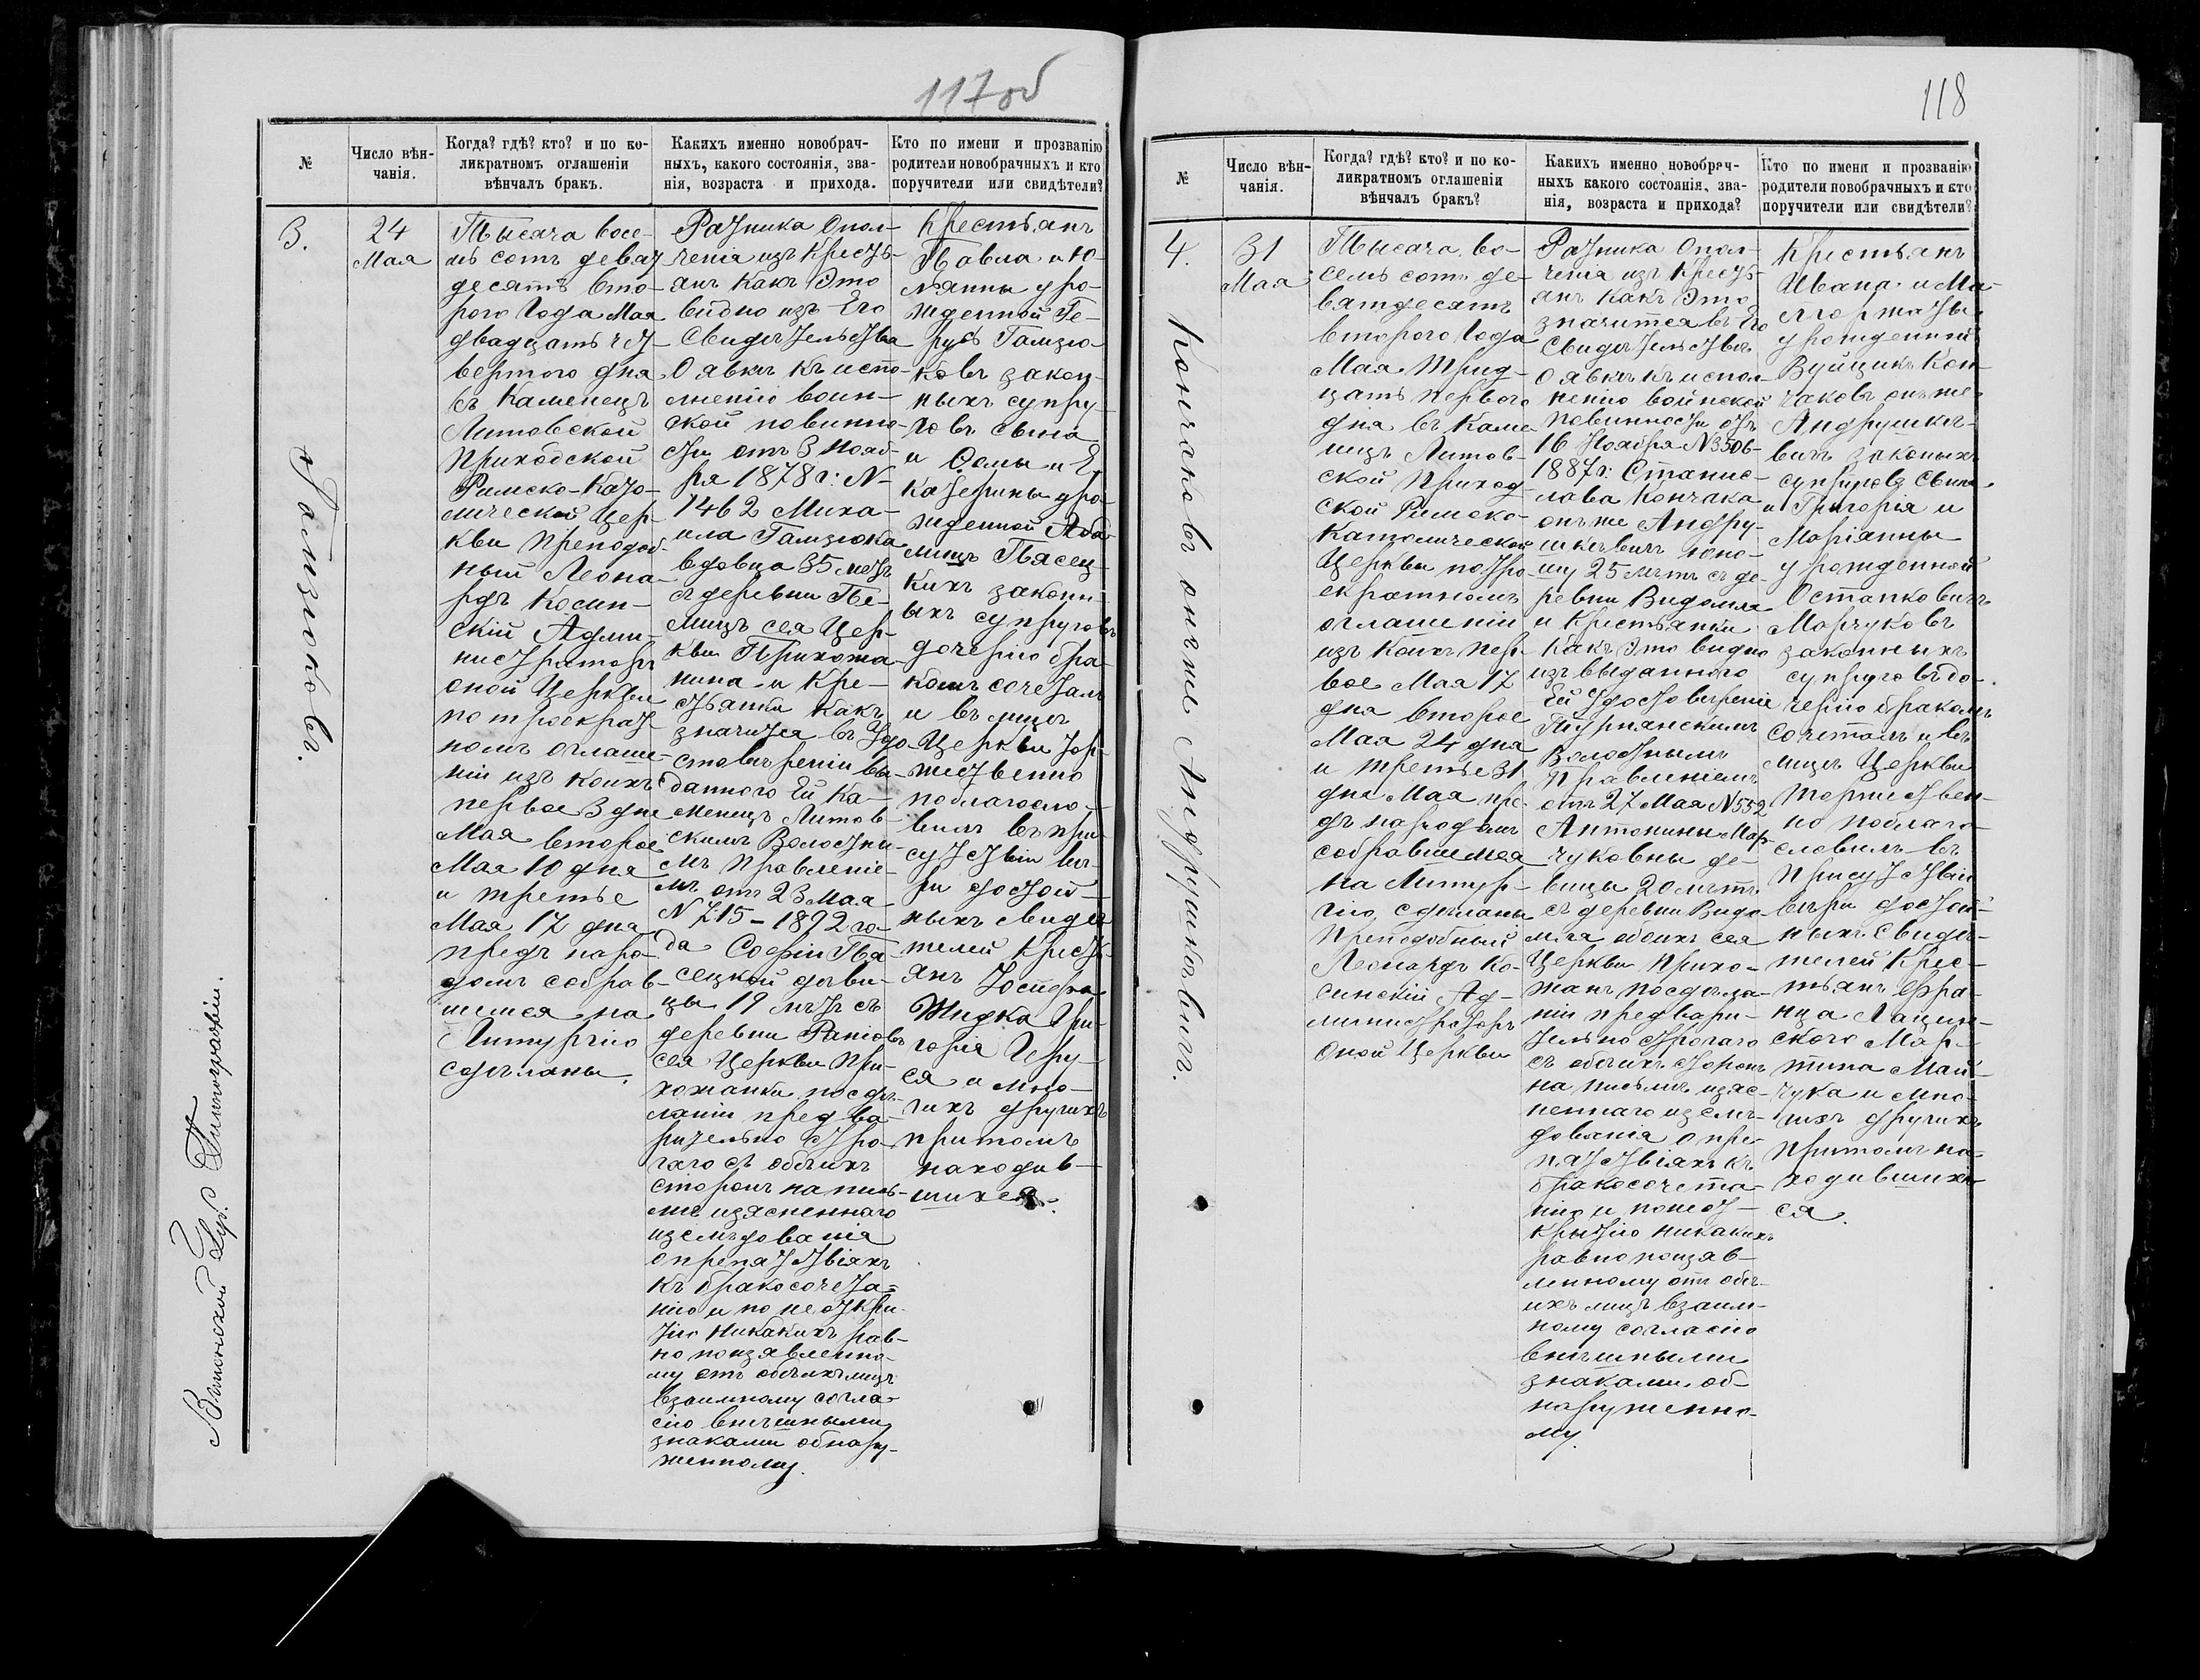 117об
№
Число вѣн-
чанія.
Когда? гдѣ? кто? и по ко-
ликратномъ оглашеніи
вѣнчалъ бракъ.
Какихъ именно новобрач-
ныхъ, какого состоянія, зва-
нія, возраста и прихода.
Кто по имени и прозванію
родители новобрачныхъ и кто
поручители или свидѣтели?
3.
Гамзюковъ.
24
Мая
Тысяча восе-
мь сотъ девят
десятъ вто-
рого Года Мая
двадцать чет
вертого дня
въ Каменецъ
Литовской
Приходской
Римско-Като-
лической Цер-
кви Преподоб-
ный Леона-
рдъ Косин-
скій Адми-
нистраторъ
оной Церкви
по троекрат
номъ оглаше-
ніи изъ коихъ
первое 3 дня
Мая второе
Мая 10 дня
и третье
Мая 17 дня
предъ наро-
домъ собрав-
шемся на
Литургію
сдѣланы.
Ратника Опол-
ченія изъ Кресть-
янъ какъ Это
видно изъ Его
Свидѣтельства
О явкѣ къ испо-
лненію воин-
ской повинно-
сти отъ 3 Нояб-
ря 1878 г: N-
1462 Миха-
ила Гамзюка
вдовца 35 лѣтъ
съ деревни Пе-
лищъ сея Цер-
кви Прихожа-
нина и Кре-
стьянки какъ
значится въ Удо-
стовѣреніи вы-
данного Ей Ка-
менецъ Литов-
скимъ Волостны-
мъ Правленіе-
мъ отъ 23 Мая
N 715 - 1892 го-
да Софіи Пя-
сецкой дѣви-
цы 19 лѣтъ съ
деревни Раніовъ
сея Церкви При-
хожанки по сдѣ-
ланіи предва-
рительно стро-
гаго съ обѣихъ
сторонъ на пись-
мѣ изясненнаго
изслѣдованія
о препятствіяхъ
къ бракосочета-
нію и по неоткры-
тію никакихъ рав-
но поизявленно-
му отъ обѣихъ лицъ
взаимному согла-
сію внѣшными
знаками обнару-
женному.
Крестьянъ
Павла и Ю-
лянны уро-
жденной Ге-
русъ Гамзю-
ковъ закон-
ныхъ супру-
говъ сына
и Ѳомы и Е
катерины уро-
жденной Аба
Пясец-
кихъ законн-
ыхъ супруговъ
дочерію бра-
комъ сочеталъ
и въ лицѣ
Церкви тор-
жественно
поблагосло-
вилъ въ при-
сутствіи вѣ-
ры достой-
ныхъ свидѣ
телей Кресть-
янъ Іосифа
Жидка Гри-
горія Геру-
ся и мно-
гихъ другихъ
притомъ
находив-
шихся.
Виленской Губ. Типографіи.
118
№
Число вѣн-
чанія.
Когда? гдѣ? кто? и по ко-
ликратномъ оглашеніи
вѣнчалъ бракъ?
Какихъ именно новобрач-
ныхъ какого состоянія, зва-
нія, возраста и прихода?
Кто по имени и прозванію
родители новобрачныхъ и кто
поручители или свидѣтели?
4.
Кончаковъ онъже Андрушкевичъ.
31
Мая
Тысяча во-
семь сотъ де-
вятдесятъ
второго Года
Мая Трид-
цать перваго
дня въ Каме
нцъ Литов-
ской Приход-
ской Римско-
Католической
Церкви по тро-
екратномъ
оглашеніи
изъ коихъ пер-
вое Мая 17
дня второе
Мая 24 дня
и третье 31
дня Мая пре-
дъ народомъ
собравшемся
на Литур-
гію, сдѣланы
Преподобный
Леонардъ Ко-
синскій Ад-
министраторъ
Оной Церкви
Ратника Опол-
ченія изъ Кресть-
янъ какъ Это
значится въ Его
Свидѣтельствѣ
О явкѣ къ испол-
ненію воинской
повинности отъ
16 Ноября N 3506-
1887 г: Станис-
лава Кончака
онъже Андру-
шкевичъ юно-
шу 25 лѣтъ съ де-
ревни Видомля
и Крестьянки
какъ Это видно
изъ выданного
Ей Удостовѣреніе
Турнянскимъ
Волостнымъ
Правленіемъ
отъ 27 Мая N 552
Антонины Мар-
чуковны дѣ-
вицы 20 лѣтъ
съ деревни Видо-
мля обоихъ сея
Церкви прихо-
жанъ по сдѣла-
ніи предвари-
тельно строгаго
съ обѣихъ сторонъ
на письмѣ изяс-
неннаго изслѣ-
дованія о пре-
пятствіяхъ къ
бракосочета-
нію и понеот-
крытію никакихъ
равно поизяв-
ленному отъ обѣ-
ихъ лицъ взаим-
ному согласію
внѣшными
знаками об-
наруженно-
му.
Крестьянъ
Ивана и Ма-
лгоржаты
урожденной
Вуйцикъ Кон-
чаковъ онъже
Андрушке-
вичъ законыхъ
супруговъ Сына
и Григорія и
Маріянны
урожденной
Остапковичъ
Марчуковъ
законныхъ
супруговъ до-
черію бракомъ
сочеталъ и въ
лицѣ Церкви
торжествен-
но поблаго-
словилъ въ
присутствіи
вѣры достой-
ныхъ Свидѣ-
телей Крес-
тьянъ Фра-
нца Лацин-
ского Мар-
тина Май-
чука и мно-
гихъ другихъ
притомъ на-
ходившихъ
ся.